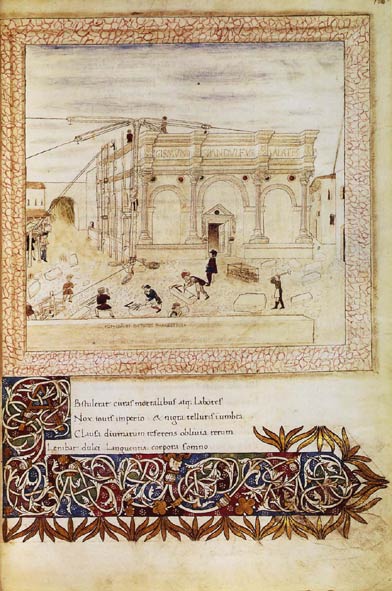 GISMVN PANDVLFVS MALATE
Abstulerat curas mortalibus atq; Labores
Nox iouis imperio & nigra telluris umbra
Clausa diurnarum referens obliuia rerum
Lenibat dulci Languentia corpora somno